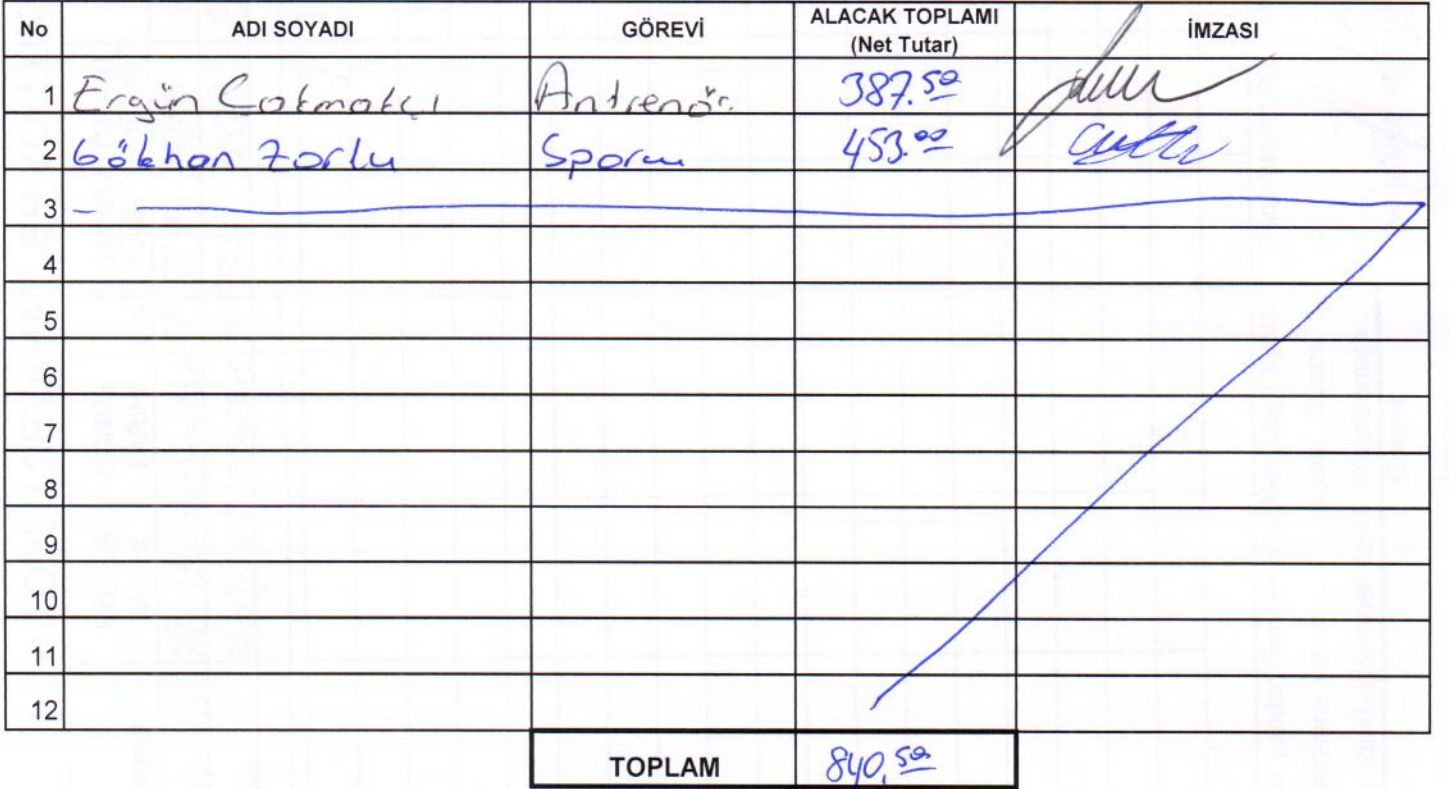 No ADI SOYADI GÖREVİ ALACAK TOPLAMI (Net Tutar) İMZASI
1 Ergün Çakmakçı Antrenör 387.50
2 Gökhan Zorlu Sporcu 453.00
3
4
5
6
7
8
9
10
11
12
TOPLAM 840,50